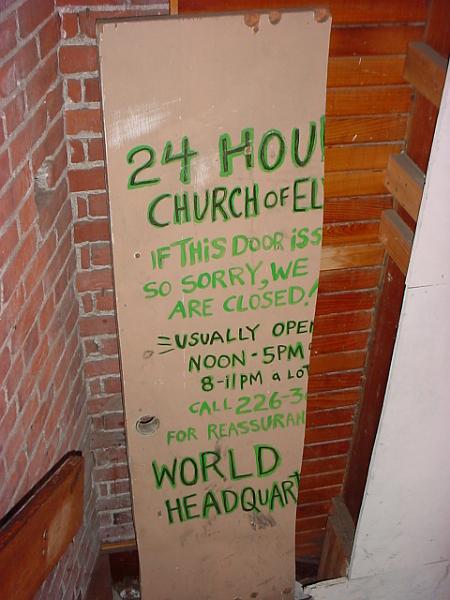 24 HOU
CHURCH OF EL
IF THIS DOOR ISS
SO SORRY, WE
ARE CLOSED!
USUALLY OPEN
NOON - 5PM
8-11PM a LOT
CALL 226-3
FOR REASSURAN
WORLD
HEADQUART